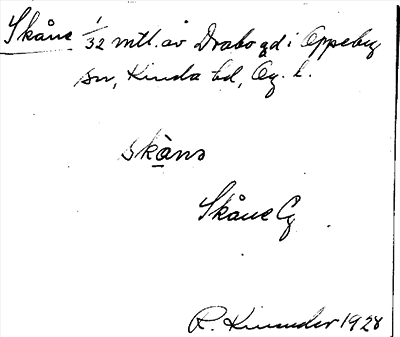 Skåne 1/32 mtl. av Drabo gd i Oppeby
sn, Kinda hd, Ög. l.
skåns
Skåne Eg
R. 1928